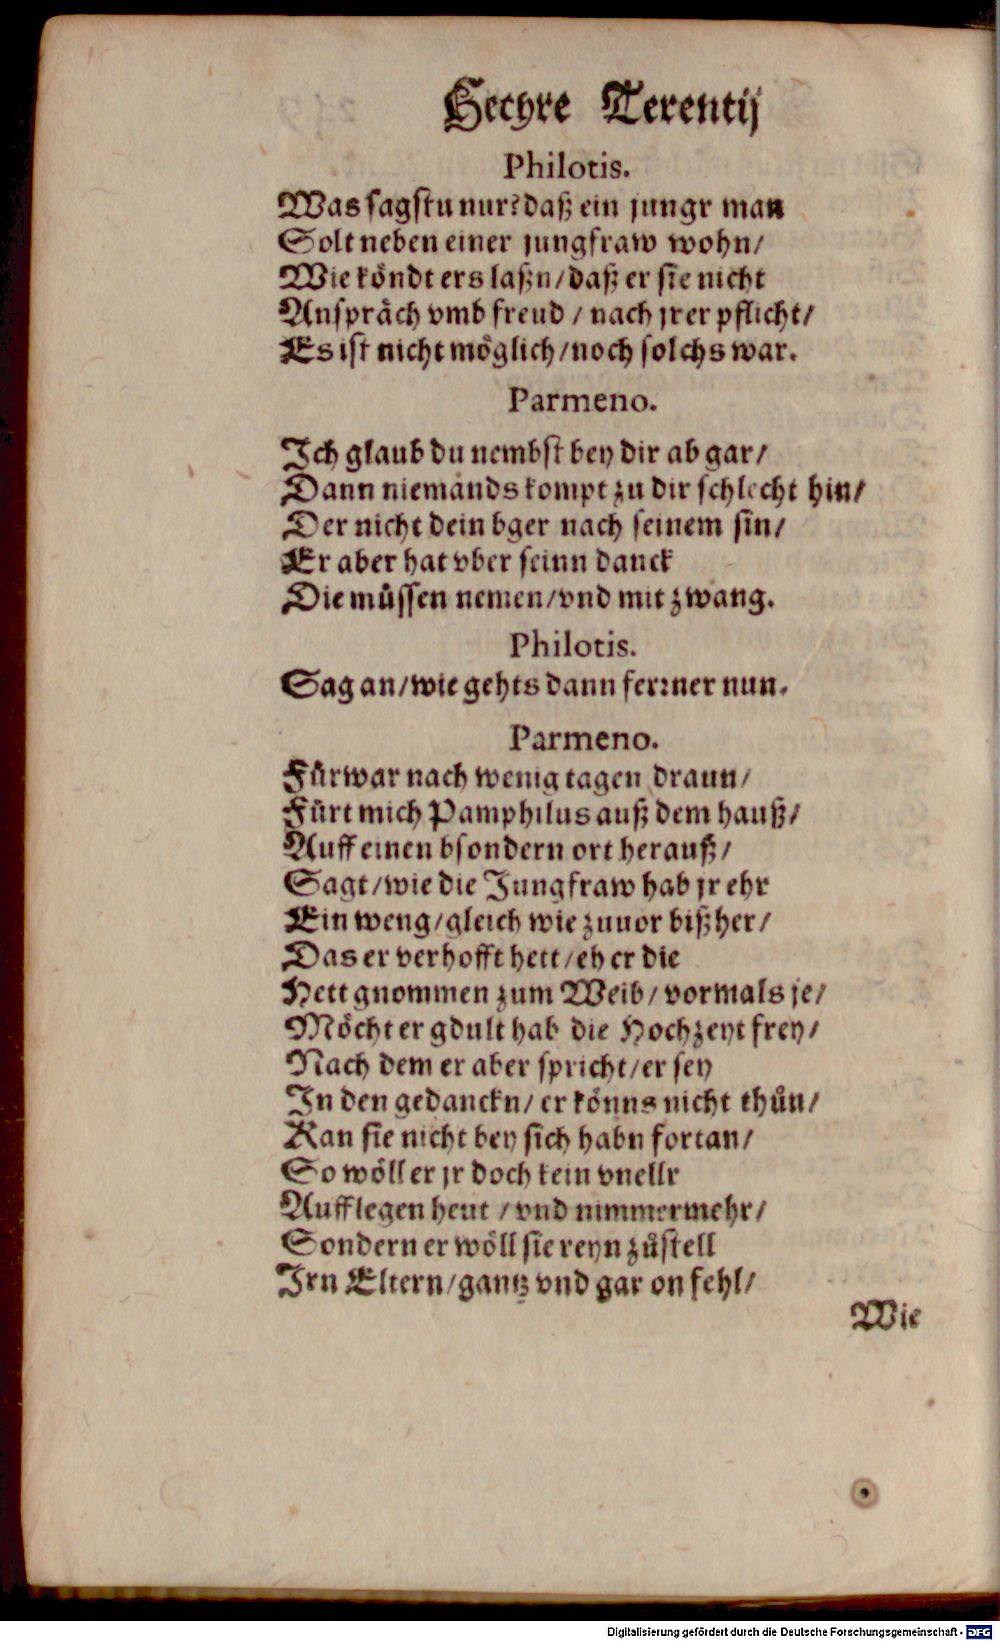 Hecyre Terentij
Philotis.
Was sagstu nur? daß ein jungr man
Solt neben einer jungfraw wohn/
Wie köndt ers laßn/ daß er sie nicht
Anspräch vmb freud / nach jrer pflicht/
Es ist nicht möglich/ noch solchs war.
Parmeno.
Ich glaub du nembst bey dir ab gar/
Dann niemands kompt zu dir schlecht hin/
Der nicht dein bger nach seinem sin/
Er aber hat vber seinn danck
Die müssen nemen/ vnd mit zwang.
Philotis.
Sag an/ wie gehts dann ferꝛner nun.
Parmeno.
Fürwar nach wenig tagen draun/
Fürt mich Pamphilus auß dem hauß/
Auff einen bsondern ort herauß/
Sagt/ wie die Jungfraw hab jr ehr
Ein weng/ gleich wie zuuor bißher/
Das er verhofft hett/ eh er die
Hett gnommen zum Weib/ vormals je/
Möcht er gdult hab die Hochzeyt frey/
Nach dem er aber spricht/ er sey
In den gedanckn/ er könns nicht thůn/
Kan sie nicht bey sich habn fortan/
So wöll er jr doch kein vnellr
Aufflegen heut / vnd nimmermehr/
Sondern er wöll sie reyn zůstell
Irn Eltern/ gantz vnd gar on fehl/
Wie
Digitalisierung gefördert durch die Deutsche Forschungsgemeinschaft - DFG